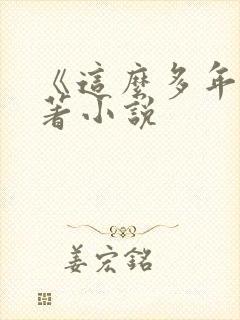 《這麼多年
著小說
姜宏銘